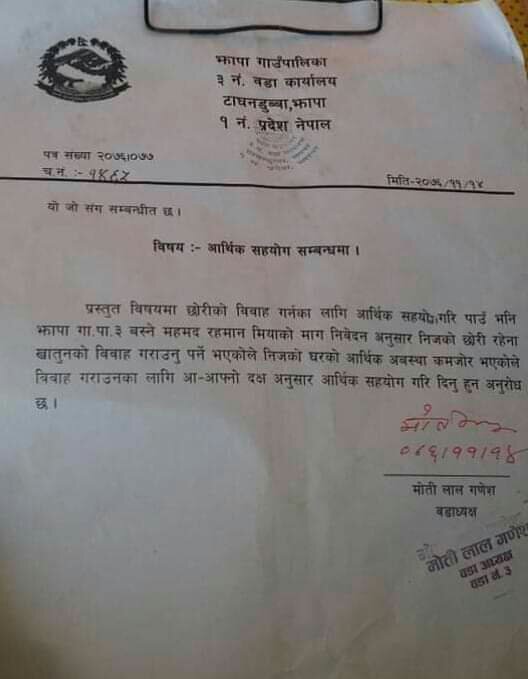 झापा गाउँपालिका
३ नं. वडा कार्यालय
टाघनडुब्बा,झापा
१ नं. प्रदेश नेपाल
पत्र संख्या २०७६।०७७
च.नं. :-
मिति-२०७६/११/१४
यो जो संग सम्बन्धीत छ ।
विषय :- आर्थिक सहयोग सम्बन्धमा ।
प्रस्तुत विषयमा छोरीको विवाह गर्नका लागि आर्थिक सहयोग गरि पाउँ भनि
झापा गा.पा.३ बस्ने महमद रहमान मियाको माग निवेदन अनुसार निजको छोरी रहेना
खातुनको विवाह गराउनु पर्ने भएकोले निजको घरको आर्थिक अवस्था कमजोर भएकोले
विवाह गराउनका लागि आ-आफ्नो दक्ष अनुसार आर्थिक सहयोग गरि दिनु हुन अनुरोध
छ ।
०७६।११।१४
मोती लाल गणेश
वडाध्यक्ष
मोती लाल गणेश
वडा अध्यक्ष
वडा नं. ३